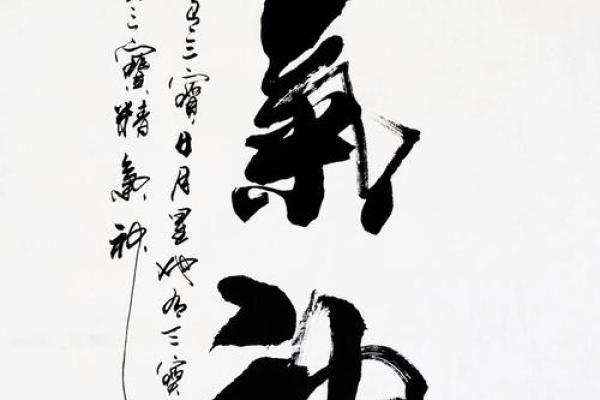 氣神
有三寶日月星地有三寶
三寶精氣神